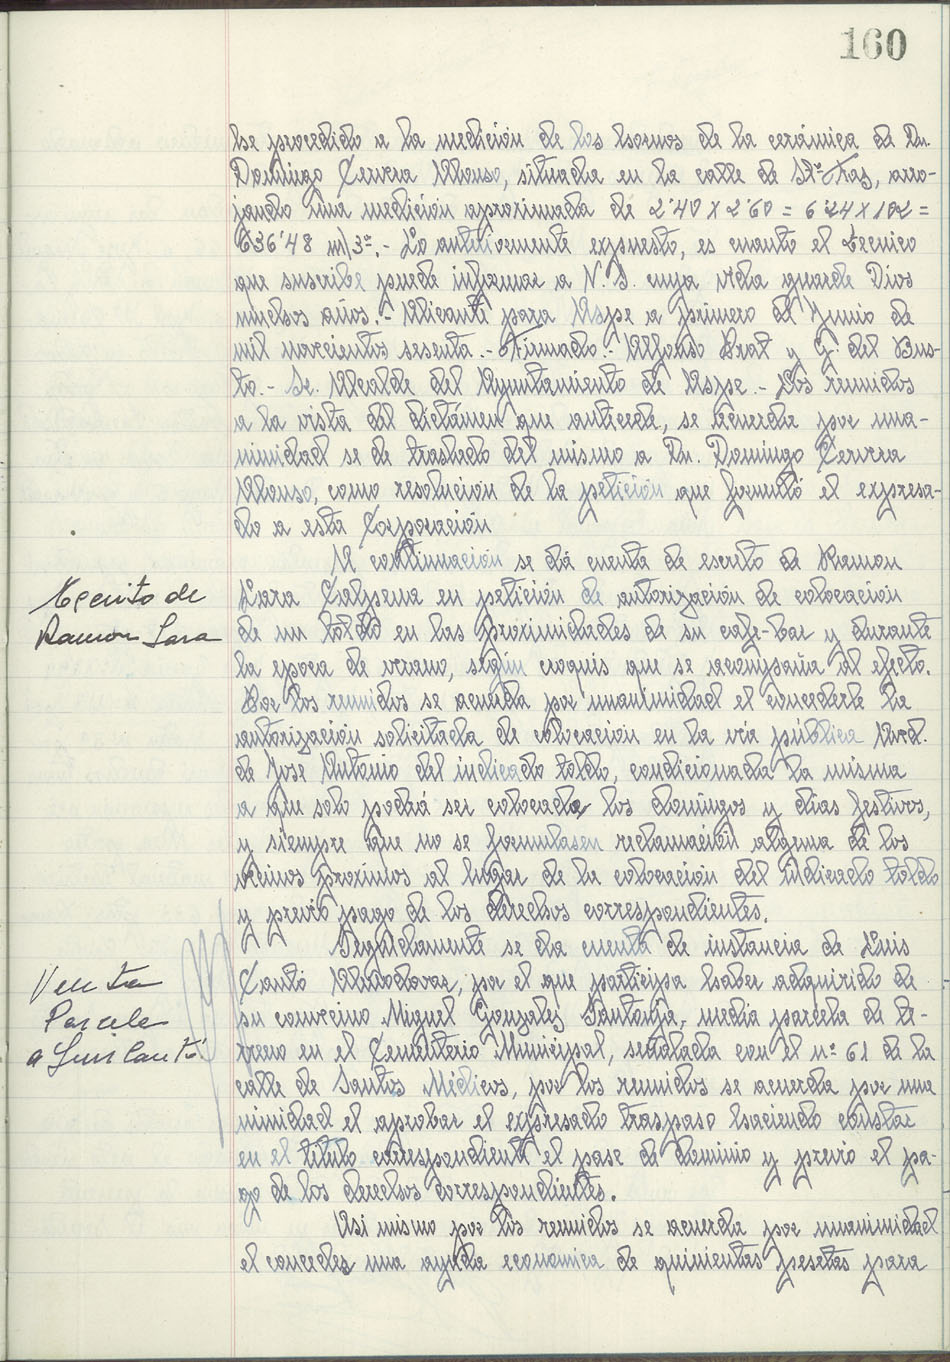 160
he procedido a la medición de los hornos de la cerámica de Dn.
Domingo Cervera Alonso, situada en la calle de Stª Fas, arro-
jando una medición aproximada de 2'40 x 2'60 = 6'24 x 102 =
636'48 m/3ª.- Lo anteriormente expuesto, es cuanto el tecnico
que suscribe puede informar a V.S. cuya vida guarde Dios
muchos años.- Alicante para Aspe a primero de Junio de
mil novecientos sesenta.- Firmado.- Alfonso Prat y G. del Bus-
to.- Sr. Alcalde del Ayuntamiento de Aspe.- Los reunidos
a la vista del dictámen que antecede, se acuerda por una-
nimidad se de traslado del mismo a Dn. Domingo Cervera
Alonso, como resolución de la petición que formuló el expresa-
do a esta Corporación
A continuación se dá cuenta de escrito de Ramon
Escrito de
Ramon Lara
Lara Calpena en petición de autorización de colocación
de un toldo en las proximidades de su cafe-bar y durante
la epoca de verano, según croquis que se acompaña al efecto.
Por los reunidos se acuerda por unanimidad el concederle la
autorización solicitada de colocación en la vía pública Avd.
de José Antonio del indicado toldo, condicionada la misma
a que solo podrá ser colocada, los domingos y dias festivos,
y siempre que no se formulasen reclamación alguna de los
vecinos proximos al lugar de la colocación del indicado toldo
y previo pago de los derechos correspondientes.
Seguidamente se da cuenta de instancia de Luis
Venta
Parcela
a Luis Cantó
Cantó Almodovar, por el que participa haber adquirido de
su convecino Miguel Gonzalez Santonja, media parcela de te-
rreno en el Cementerio Municipal, señalada con el nº 61 de la
calle de Santos Médicos, por los reunidos se acuerda por una
nimidad el aprobar el expresado traspaso haciendo constar
en el titulo correspondiente el pase de dominio y previo el pa-
go de los derechos correspondientes.
Asi mismo por los reunidos se acuerda por unanimidad
el conceder una ayuda economica de quinientas pesetas para